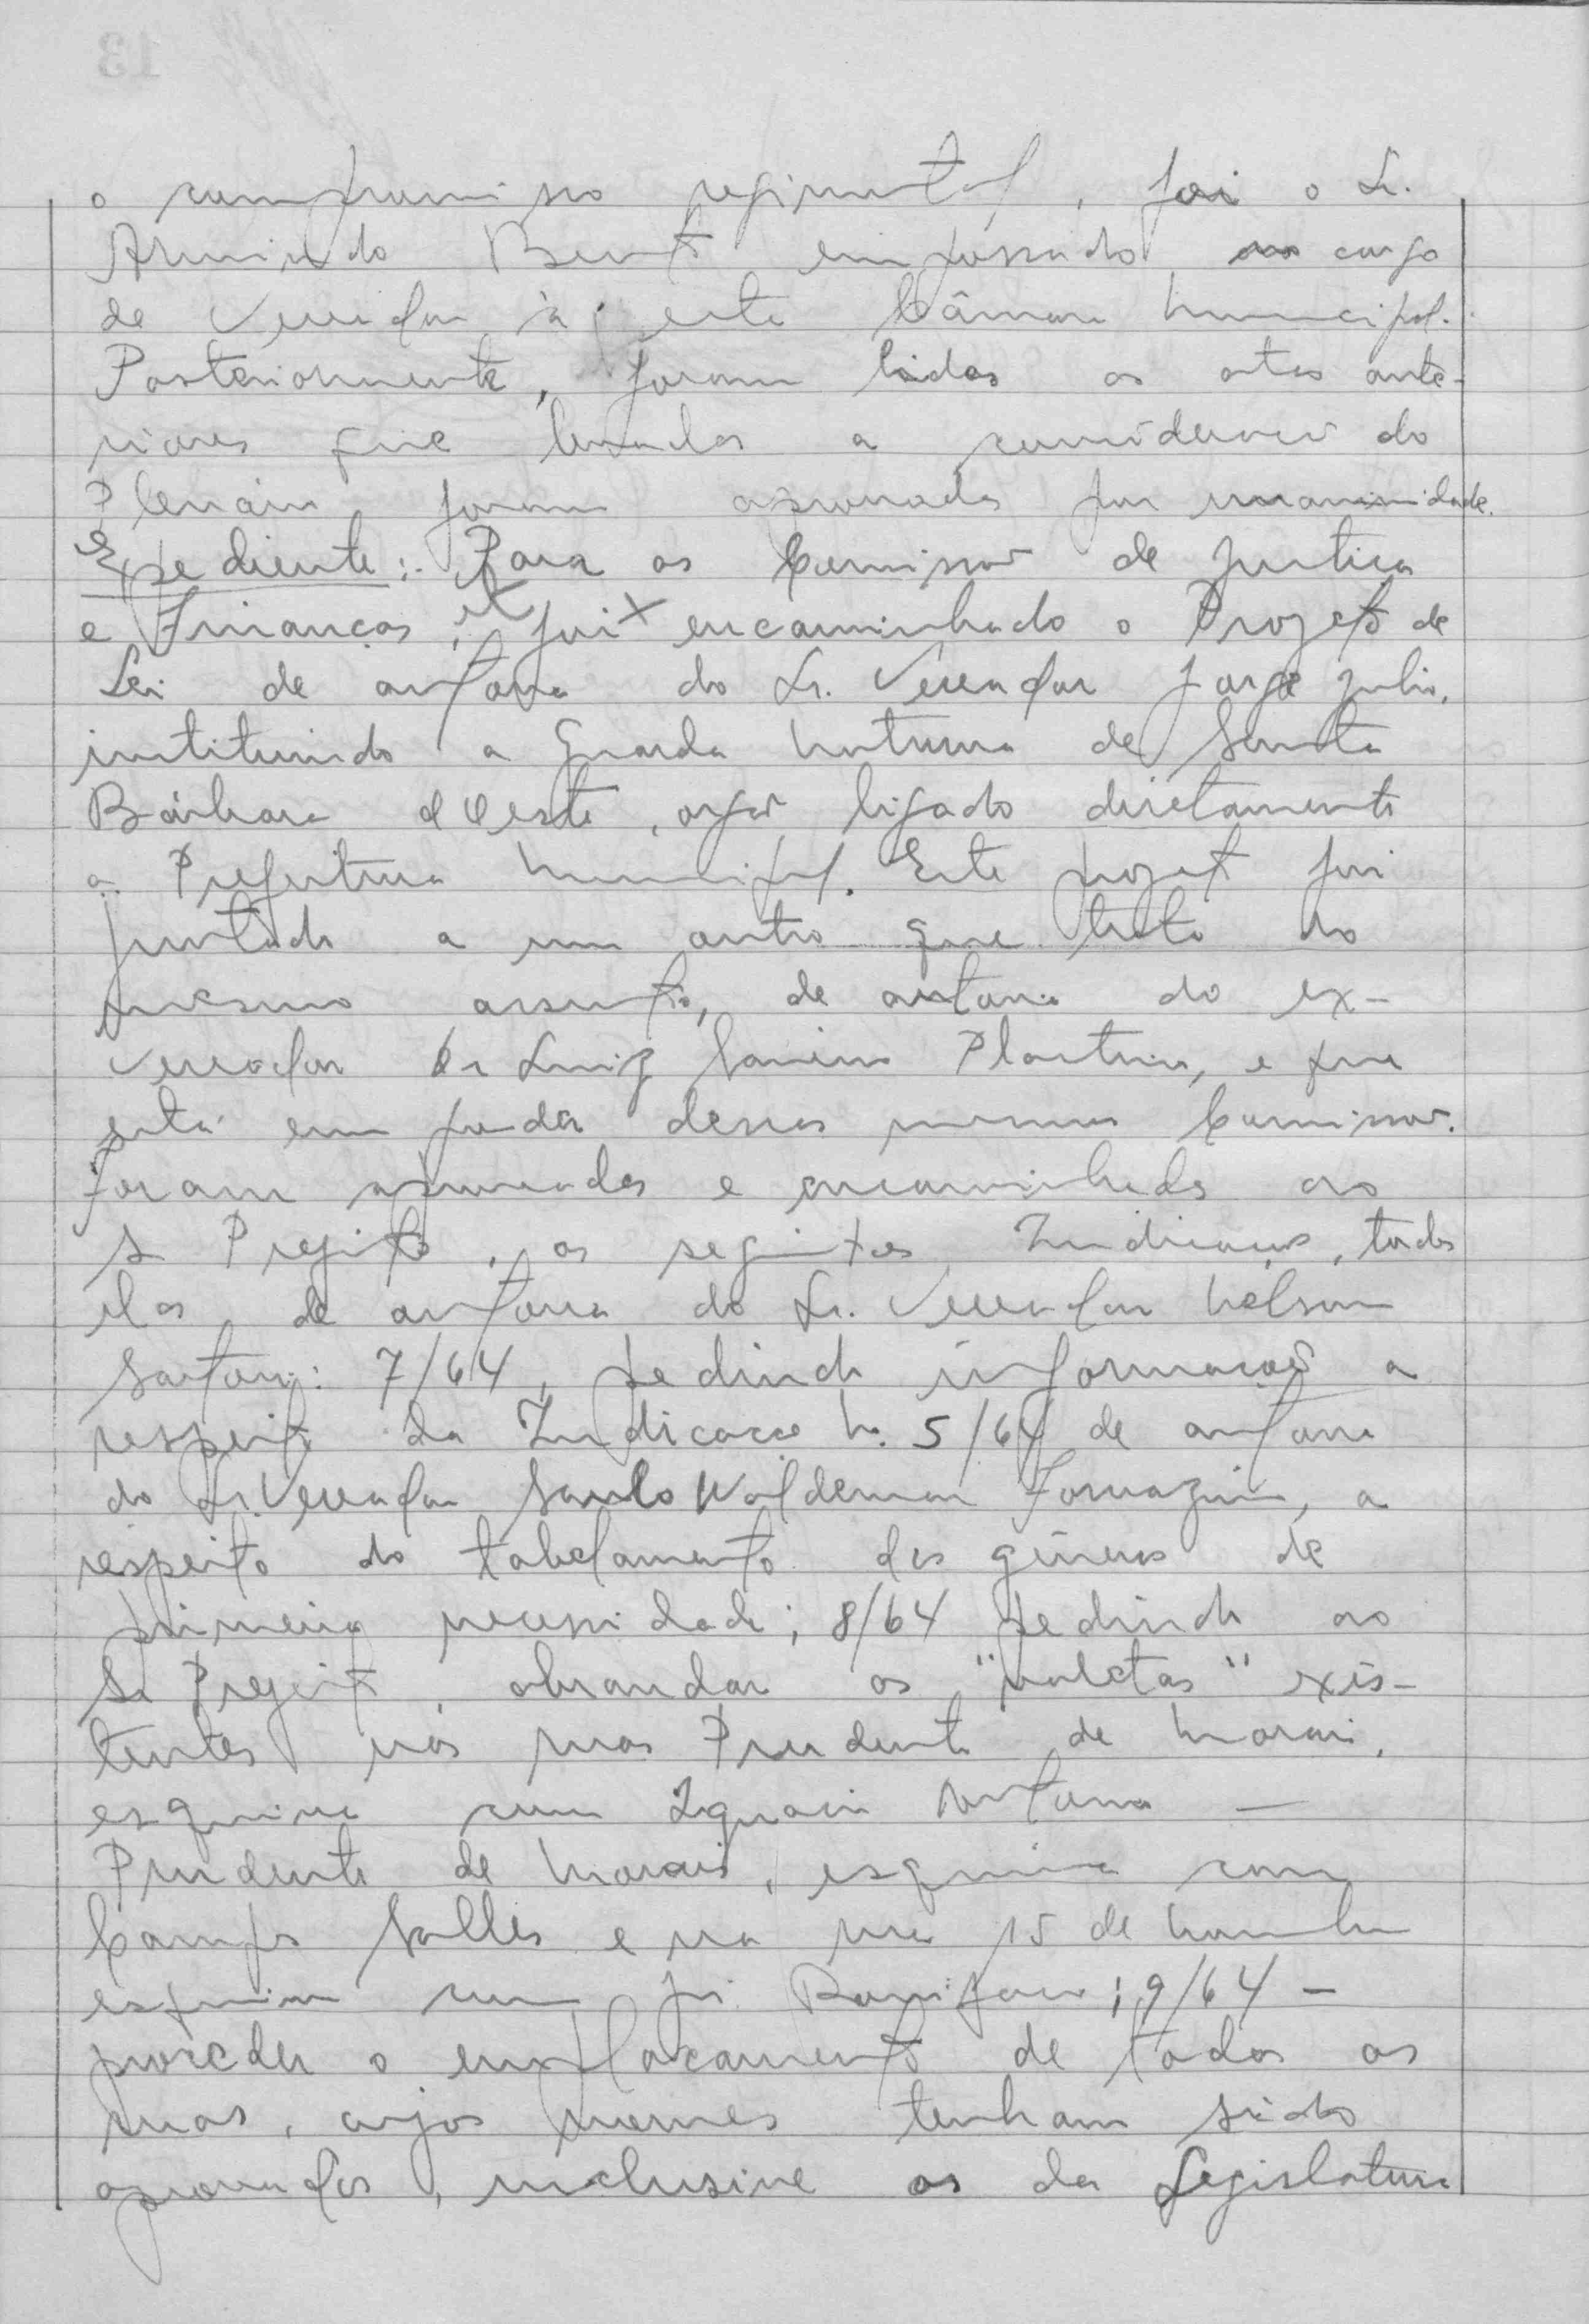 o compromisso regimental, foi o Sr.
Armindo Bent empossado no cargo
de Vereador à esta Câmara Municipal.
Posteriormente, foram lidas as atas ante-
riores que levadas a consideração do
Plenário foram aprovadas por unanimidade.
Expediente:- Para as Comissões de Justica
e Finanças, foi encaminhado o Projeto de
Lei de autoria do Sr. Vereador Jorge Julio,
instituindo a Guarda Noturna de Santa
Bárbara d'Oeste, orgão ligado diretamente
a Prefeitura Municipal. Este projeto foi
juntado a um outro que trata do
mesmo assunto, de autoria do ex-
Vereador Dr Luiz e que
está em poder dessas mesmas Comissões.
Foram aprovadas e encaminhadas ao
Sr Prefeito, as seguintes Indicações, todas
elas de autoria do Sr. Vereador Nelson
Sartori: 7/64, pedindo informações a
respeito da Indicação N. 5/64 de autoria
do Sr. Vereador Saulo Waldemar Fornazin, a
respeito do tabelamento dos gêneros de
primeira necessidade; 8/64 pedindo ao
Sr Prefeito, abrandar as "valetas" exis-
tentes nas ruas Prudente de Morais,
esquina com Ignacio Antonio —
Prudente de Morais, esquina com
Campos Salles e na rua 15 de Novembro
esquina com José Bonifacio; 9/64 —
proceder o emplacamento de todas as
ruas, cujos nomes tenham sido
aprovados, inclusive as da Legislatura